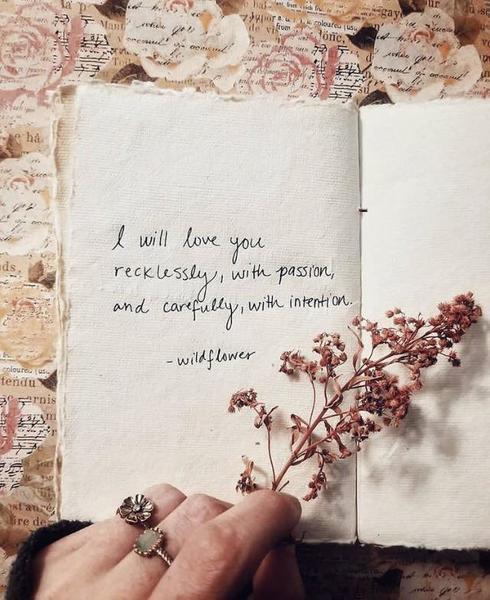 I will love you
recklessly, with passion,
and carefully, with intention.
-wildflower